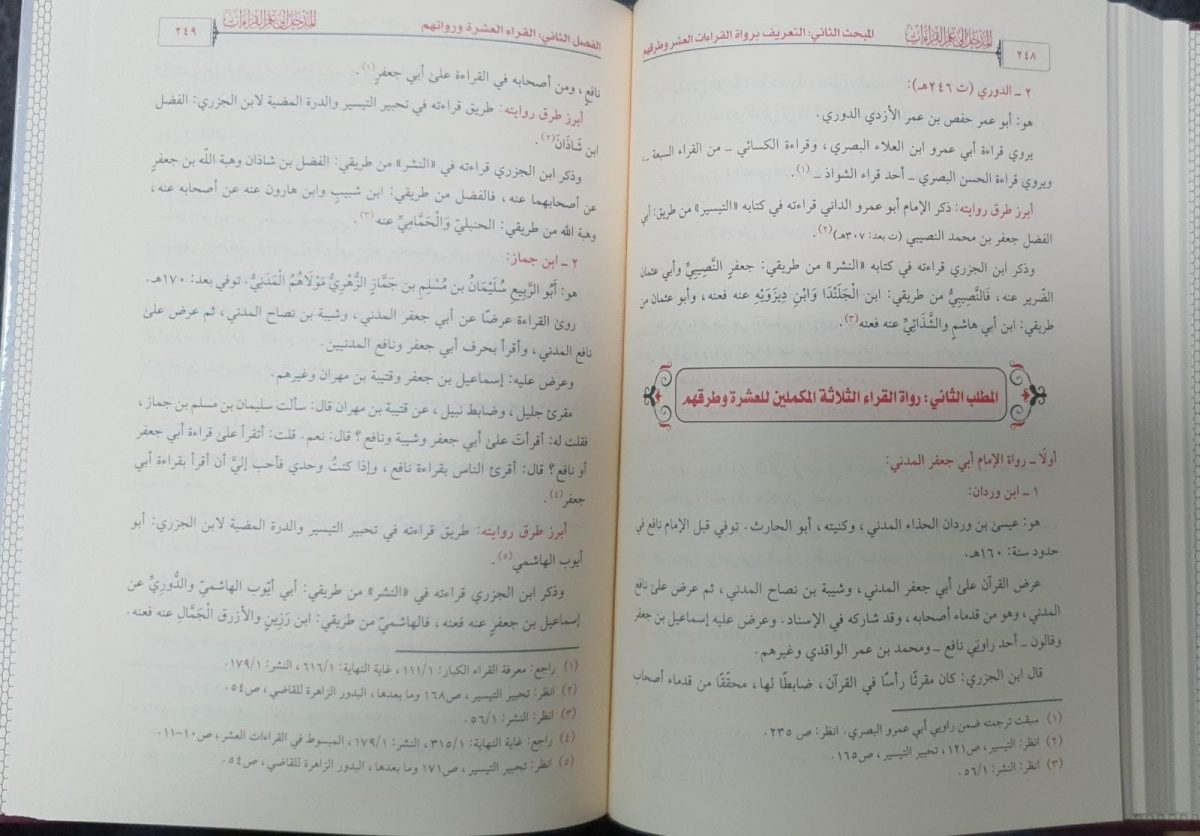 ٢٤٨
المدخل إلى علم القراءات
المبحث الثاني: التعريف برواة القراءات العشر وطرقهم
٢ ـ الدوري (ت ٢٤٦هـ):
هو: أبو عمر حفص بن عمر الأزدي الدوري.
يروي قراءة أبي عمرو ابن العلاء البصري، وقراءة الكسائي ـ من القراء السبعة ـ،
ويروي قراءة الحسن البصري ـ أحد قراء الشواذ ـ (١).
أبرز طرق روايته: ذكر الإمام أبو عمرو الداني قراءته في كتابه «التيسير» من طريق: أبي
الفضل جعفر بن محمد النصيبي (ت بعد: ٣٠٧هـ)(٢).
وذكر ابن الجزري قراءته في كتابه «النشر» من طريقي: جعفرٍ النَّصِيبِيِّ وأبي عثمان
الضرير عنه، فَالنَّصِيبِيُّ من طريقي: ابن الْجَلَنْدَا وَابْنِ دِيزَوَيْهِ عنه فعنه، وأبو عثمان من
طريقي: ابن أبي هاشمٍ والشَّذَائِيِّ عنه فعنه(٣).
المطلب الثاني: رواة القراء الثلاثة المكملين للعشرة وطرقهم
أولًا ـ رواة الإمام أبي جعفر المدني:
١ ـ ابن وردان:
هو: عيسىٰ بن وردان الحذاء المدني، وكنيته، أبو الحارث. توفي قبل الإمام نافع في
حدود سنة: ١٦٠هـ.
عرض القرآن علىٰ أبي جعفر المدني، وشيبة بن نصاح المدني، ثم عرض علىٰ نافع
المدني، وهو من قدماء أصحابه، وقد شاركه في الإسناد. وعرض عليه إسماعيل بن جعفر
وقالون ـ أحد راويَي نافع ـ ومحمد بن عمر الواقدي وغيرهم.
قال ابن الجزري: كان مقرئًا رأسًا في القرآن، ضابطًا لها، محقّقًا من قدماء أصحاب
(١) سبقت ترجمته ضمن راويي أبي عمرو البصري. انظر: ص ٢٣٥.
(٢) انظر: التيسير، ص١٢١، تحبير التيسير، ص١٦٥.
(٣) انظر: النشر: ٥٦/١.
الفصل الثاني: القراء العشرة ورواتهم
المدخل إلى علم القراءات
٢٤٩
نافعٍ، ومن أصحابه في القراءة علىٰ أبي جعفرٍ(١).
أبرز طرق روايته: طريق قراءته في تحبير التيسير والدرة المضية لابن الجزري: الفضل
ابن شَاذَانَ(٢).
وذكر ابن الجزري قراءته في «النشر» من طريقي: الفضل بن شاذان وهبة اللّه بن جعفرٍ
عن أصحابهما عنه، فالفضل من طريقي: ابن شبيبٍ وابن هارون عنه عن أصحابه عنه،
وهبة الله من طريقي: الحنبليّ وَالْحَمَّامِيِّ عنه(٣).
٢ ـ ابن جماز:
هو: أَبُو الرَّبِيعِ سُلَيْمَانُ بن مُسْلِمِ بن جَمَّازٍ الزُّهْرِيُّ مَوْلَاهُمُ الْمَدَنِيُّ. توفي بعد: ١٧٠هـ.
روىٰ القراءة عرضًا عن أبي جعفر المدني، وشيبة بن نصاح المدني، ثم عرض علىٰ
نافع المدني، وأقرأ بحرف أبي جعفر ونافع المدنيين.
وعرض عليه: إسماعيل بن جعفر وقتيبة بن مهران وغيرهم.
مقرئ جليل، وضابط نبيل، عن قتيبة بن مهران قال: سألت سليمان بن مسلم بن جماز،
فقلت له: أقرأتَ علىٰ أبي جعفر وشيبة ونافع؟ قال: نعم. قلت: أتقرأ علىٰ قراءة أبي جعفر
أو نافع؟ قال: أقرئ الناس بقراءة نافع، وإذا كنتُ وحدي فأحب إليَّ أن أقرأ بقراءة أبي
جعفر(٤).
أبرز طرق روايته: طريق قراءته في تحبير التيسير والدرة المضية لابن الجزري: أبو
أيوب الهاشمي(٥).
وذكر ابن الجزري قراءته في «النشر» من طريقي: أبي أيّوب الهاشميّ والدُّورِيِّ عن
إسماعيل بن جعفرٍ عنه فعنه، فالهاشميّ من طريقي: ابن رَزِينٍ والأزرق الْجَمَّالِ عنه فعنه.
(١) راجع: معرفة القراء الكبار: ١١١/١، غاية النهاية: ٦١٦/١، النشر: ١٧٩/١.
(٢) انظر: تحبير التيسير، ص١٦٨ وما بعدها، البدور الزاهرة للقاضي، ص٥٤.
(٣) انظر: النشر: ٥٦/١.
(٤) راجع: غاية النهاية: ٣١٥/١، النشر: ١٧٩/١، المبسوط في القراءات العشر، ص١٠-١١.
(٥) انظر: تحبير التيسير، ص١٧١ وما بعدها، البدور الزاهرة للقاضي، ص٥٤.